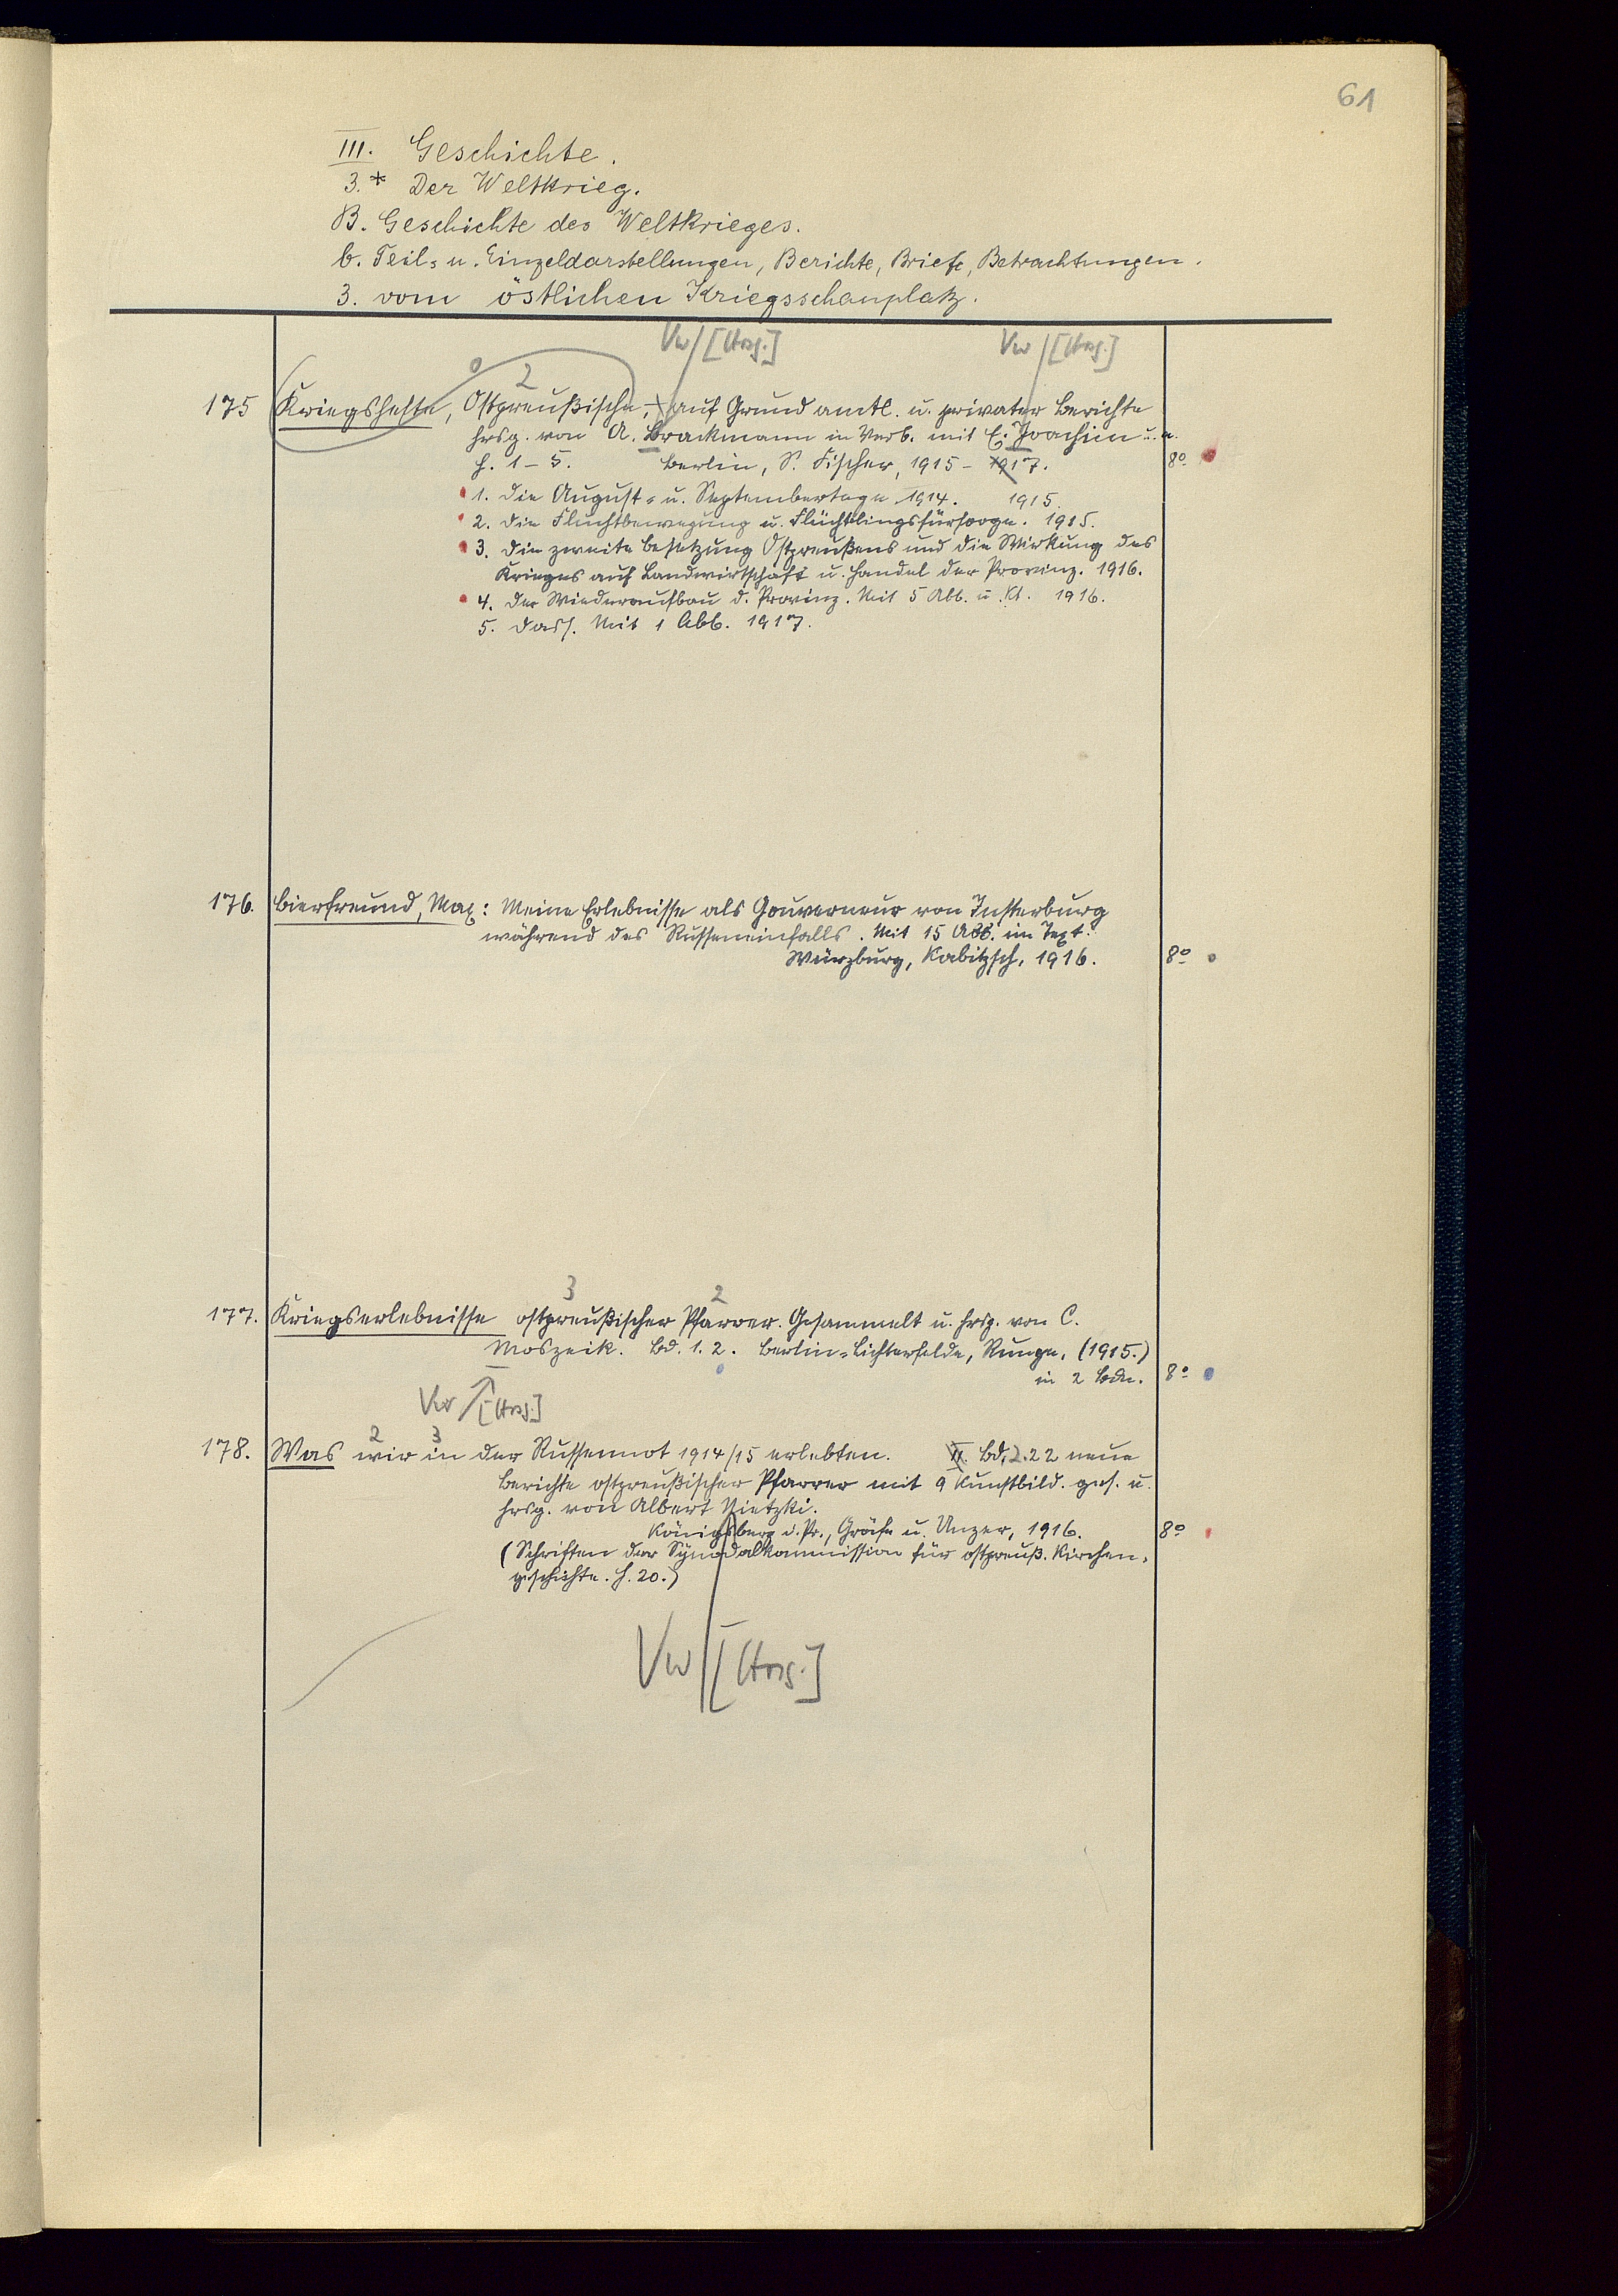 61
III. Geschichte.
3.* Der Weltkrieg.
B. Geschichte des Weltkrieges.
b. Teil- u. Einzeldarstellungen, Berichte, Briefe, Betrachtungen.
3. vom östlichen Kriegsschauplatz.
Vw [Hrsg.] Vw [Hrsg.]
2
175 Kriegshefte, Ostpreußische, auf Grund amtl. u. privater Berichte
hrsg. von A. Brackmann in Verb. mit E. Joachim u. a.
H. 1-5. Berlin, S. Fischer, 1915-1917. 8º
1. Die August- u. Septembertage 1914. 1915.
2. Die Fluchtbewegung u. Flüchtlingsfürsorge. 1915.
3. Die zweite Besetzung Ostpreußens und die Wirkung des
Krieges auf Landwirtschaft u. Handel der Provinz. 1916.
4. Der Wiederaufbau d. Provinz. Mit 5 Abb. u. Kt. 1916.
5. Dass. Mit 1 Abb. 1917.
176. Bierfreund, Max: Meine Erlebnisse als Gouverneur von Insterburg
während des Russeneinfalls. Mit 15 Abb. im Text.
Würzburg, Kabitzsch, 1916. 8º
3 2
177. Kriegserlebnisse ostpreußischer Pfarrer. Gesammelt u. hrsg. von C.
Moszeik. Bd. 1. 2. Berlin-Lichterfelde, Runge, (1915.)
in 2 Bdn. 8º
Vw [Hrsg.]
2 3
178. Was wir in der Russennot 1914/15 erlebten. II. Bd. 2. 22 neue
Berichte ostpreußischer Pfarrer mit 9 Kunstbild. ges. u.
hrsg. von Albert Nietzki.
Königsberg i. Pr., Gräfe u. Unzer, 1916. 8º
(Schriften der Synodalkommission für ostpreuß. Kirchen-
geschichte. H. 20.)
Vw [Hrsg.]